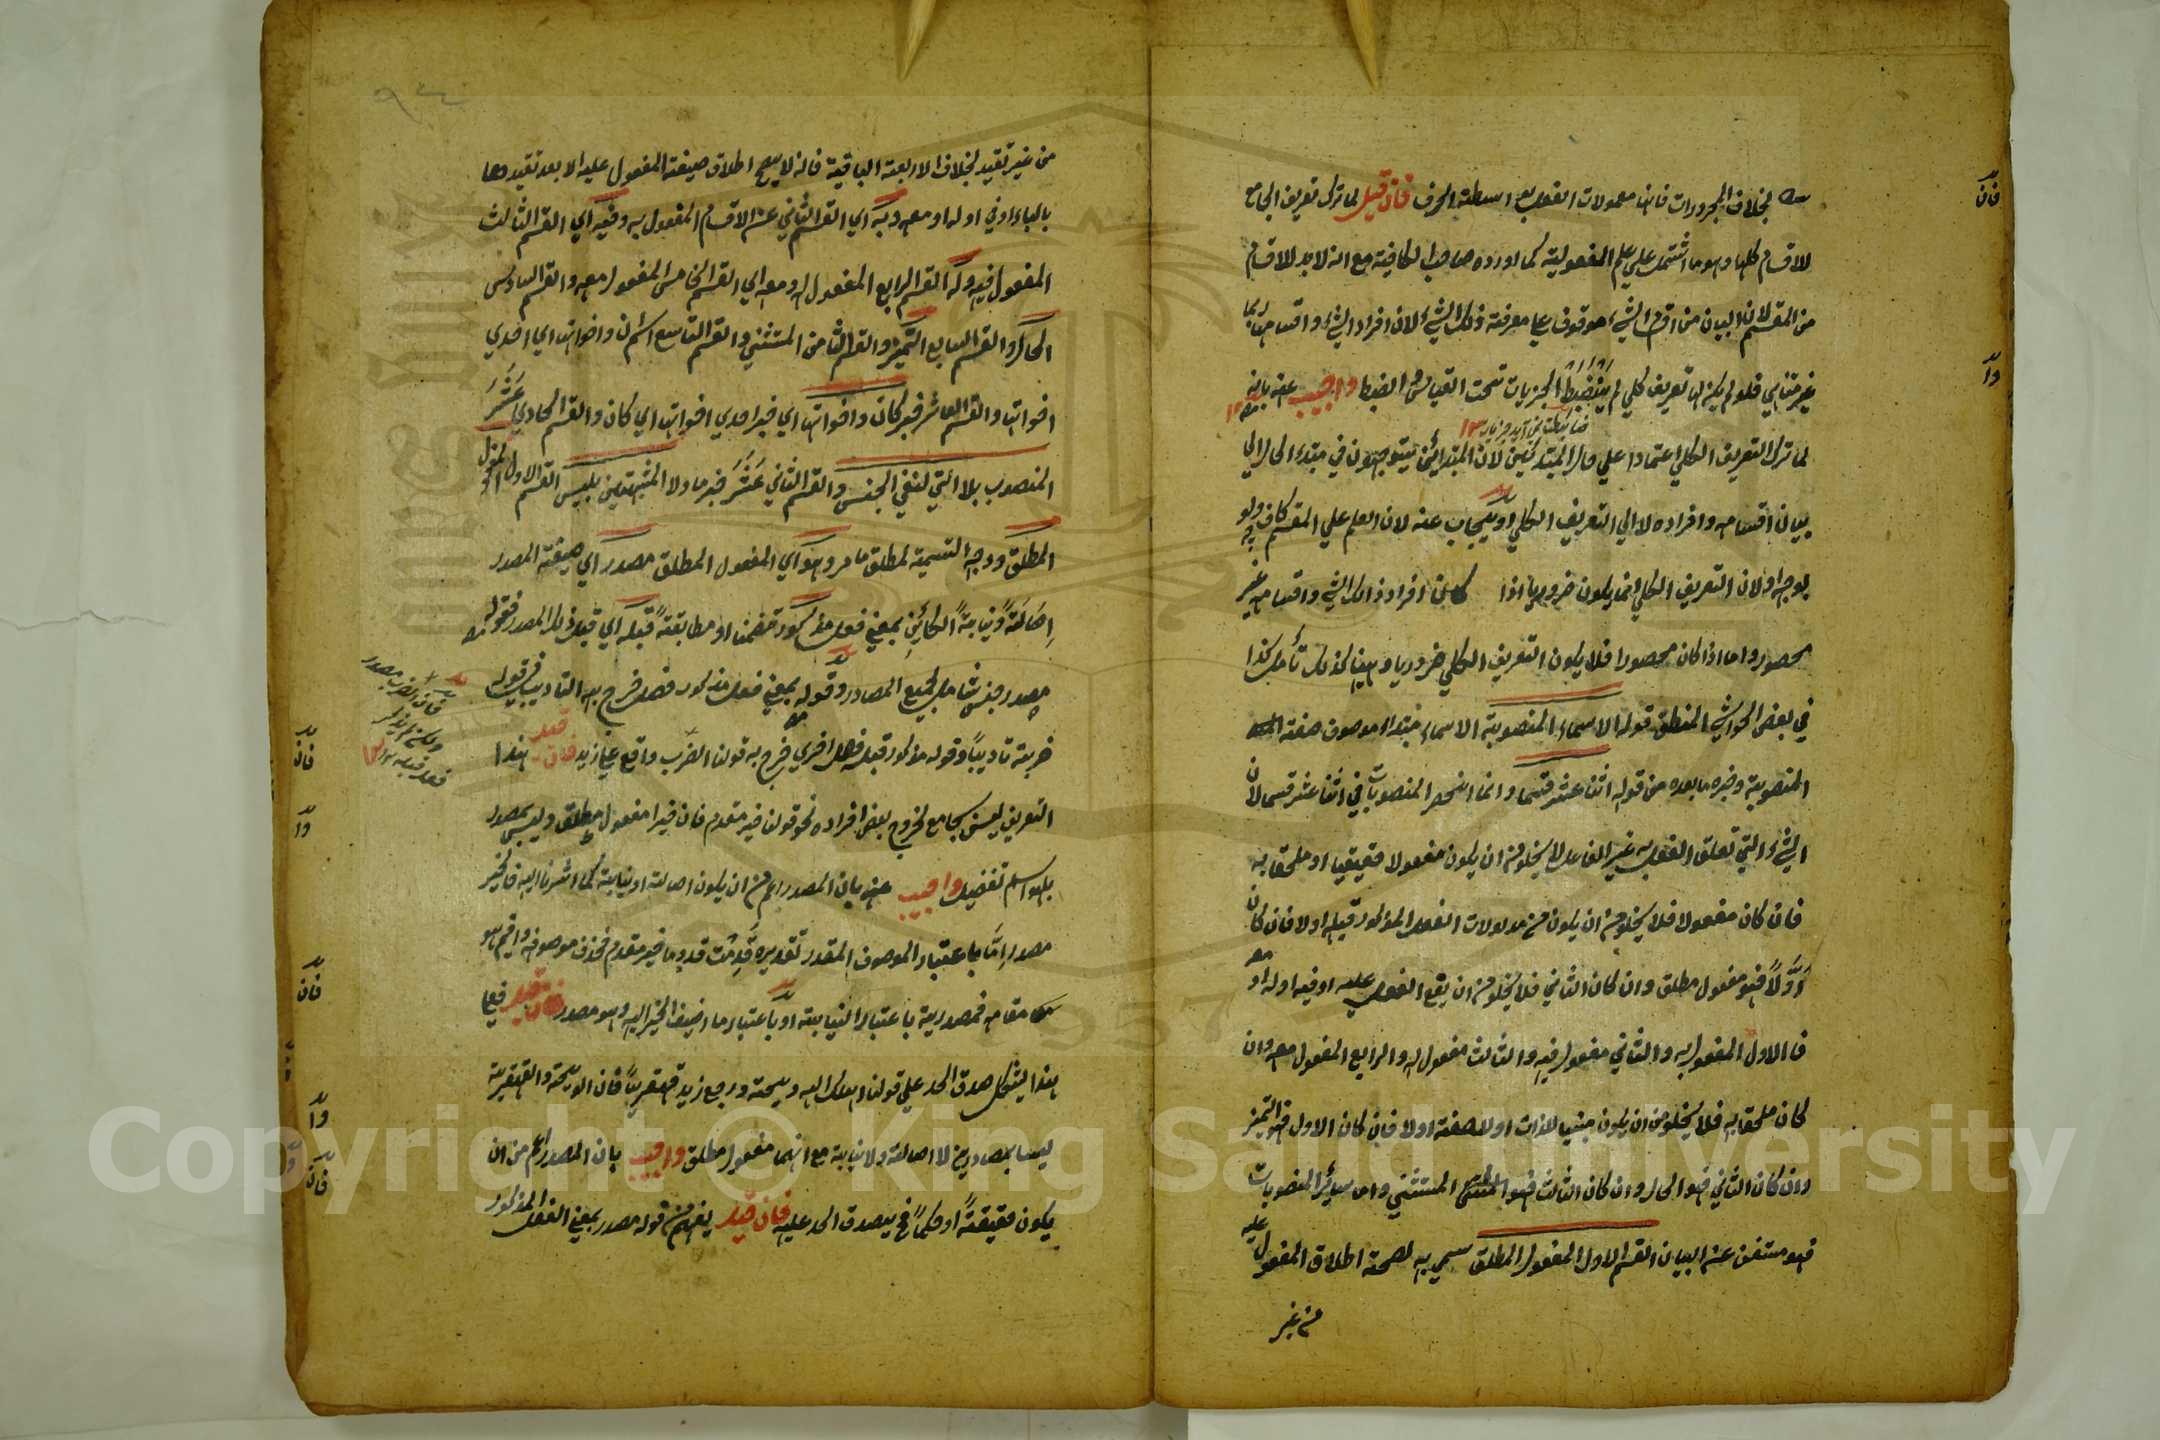 بخلاف المجرورات فانها معمولات الفعل بواسطة الحرف فان قيل لما ترك تعريف الجامع
للاقسام كلها وهو ما اشتمل على علم المفعولية كما اورده صاحب الكافية مع انه لابد للاقسام
من المقسم لان البيان من اقسام الشيء موقوف على معرفة ذلك الشيء لان افراد الشيء واقسامه ربما
غير متناهي فلو لم يكن لها تعريف كلي لم ينضبط الجزيات تحت القياس والضبط واجيب عنه بانه
لما ترك التعريف الكلي اعتمادا علي حال المبتدئين لان المبتدائين يتوجهون في مبتداء الحال الي
بيان اقسامه وافراده لا الي التعريف الكلي او يجاب عنه لان العلم علي المقسم كاف ولو
بوجه اولان التعريف الكلي انما يكون ضروريا اذا كان افراد ذالك الشيء واقسامه غير
محصور واما اذا كان محصورا فلا يكون التعريف الكلي ضروريا وههنا كذلك تأمل كذا
في بعض الحواشي المنطق قوله الاسماء المنصوبة الاسماء مبتداء موصوف صفته
المنصوبة وخبره ما بعده من قوله اثنا عشر قسما وانما انحصر المنصوبات في اثنا عشر قسما لان
الشيء التي تعلق الفعل به غير الفاعل لا يخلو من ان يكون مفعولا حقيقيا او ملحقا به
فان كان مفعولا فلا يخلو من ان يكون من مدلولات الفعل المذكور قبله اولا فان كان
اوّلاً فهو مفعول مطلق وان كان الثاني فلا يخلو من ان يقع الفعل عليه او فيه اوله او معه
فالاول المفعول به والثاني مفعول فيه والثالث مفعول له والرابع المفعول معه وان
كان ملحقا به فلا يخلو من ان يكون مبنيا للذات اولا صفة اولا فان كان الاول فهو التميز
وان كان الثاني فهو الحال وان كان الثالث فهو المستثني واما سائر المنصوبات
فهو مستغن عن البيان القسم الاول المفعول المطلق سمي به لصحة اطلاق المفعول عليه
من غير
من غير تقييد بخلاف الاربعة الباقية فانه لا يصح اطلاق صيغة المفعول عليه الا بعد تقييدها
بالباء او في اوله او معه وبه اي القسم الثاني عن الاقسام المفعول به وفيه اي القسم الثالث
المفعول فيه وله القسم الرابع المفعول له ومعه اي القسم الخامس المفعول معه والقسم السادس
الحال والقسم السابع التميز والقسم الثامن المستثني والقسم التاسع اسم ان واخواتها اي احدي
اخواتها والقسم العاشر خبر كان واخواتها اي خبر احدي اخواتها اي كان والقسم الحادي عَشَرَ
المنصوب بلا التي لنفي الجنس والقسم الثاني عَشَرَ خبر ما ولا المشبهتين بليس القسم الاول المفعول
المطلق ووجه التسمية لمطلق ما مر وهو اي المفعول المطلق مصدر اي صيغة المصدر
اِصَالَةً ونيابةً الكائِن بمعني فعل مذكور تضمنا او مطابقة قبله اي قبل ذلك المصدر فقوله
مصدر جنس شامل لجميع المصادر وقوله بمعني فعل مذكور فصل خرج به التاديب في قوله
ضربته تاديباً وقوله مذكور قبله فصل اخري خرج به قولنا الضرب واقع علي زيد فان قيل هذا
التعريف ليس بجامع لخروج بعض افراده نحو قولنا خير مقدم فان خيرا مفعول مطلق وليس بمصدر
بل هو اسم تفضيل واجيب عنه بان المصدر اعم من ان يكون اصالة او نيابة كما اشرنا اليه فالخير
مصدر اِمّا باعتبار الموصوف المقدر تقديره قدمت قدوما خير مقدم فحذف موصوفه واقيم هو
مقامه فمصدرية باعتبار النيابة او باعتبار ما اضيف الخير اليه وهو مصدر فان قيل فعلي
هذا يشكل صدق الحد علي قولنا ويحه ورجع زيد قهقريا فان الويحة والقهقرية
ليسا بمصدرين لا اصالة ولا نيابة مع انهما مفعول مطلق واجيب بان المصدر اعم من ان
يكون حقيقةً او حكماً فح يصدق الحد عليه فان قيل يفهم من قوله مصدر بمعني الفعل المذكور